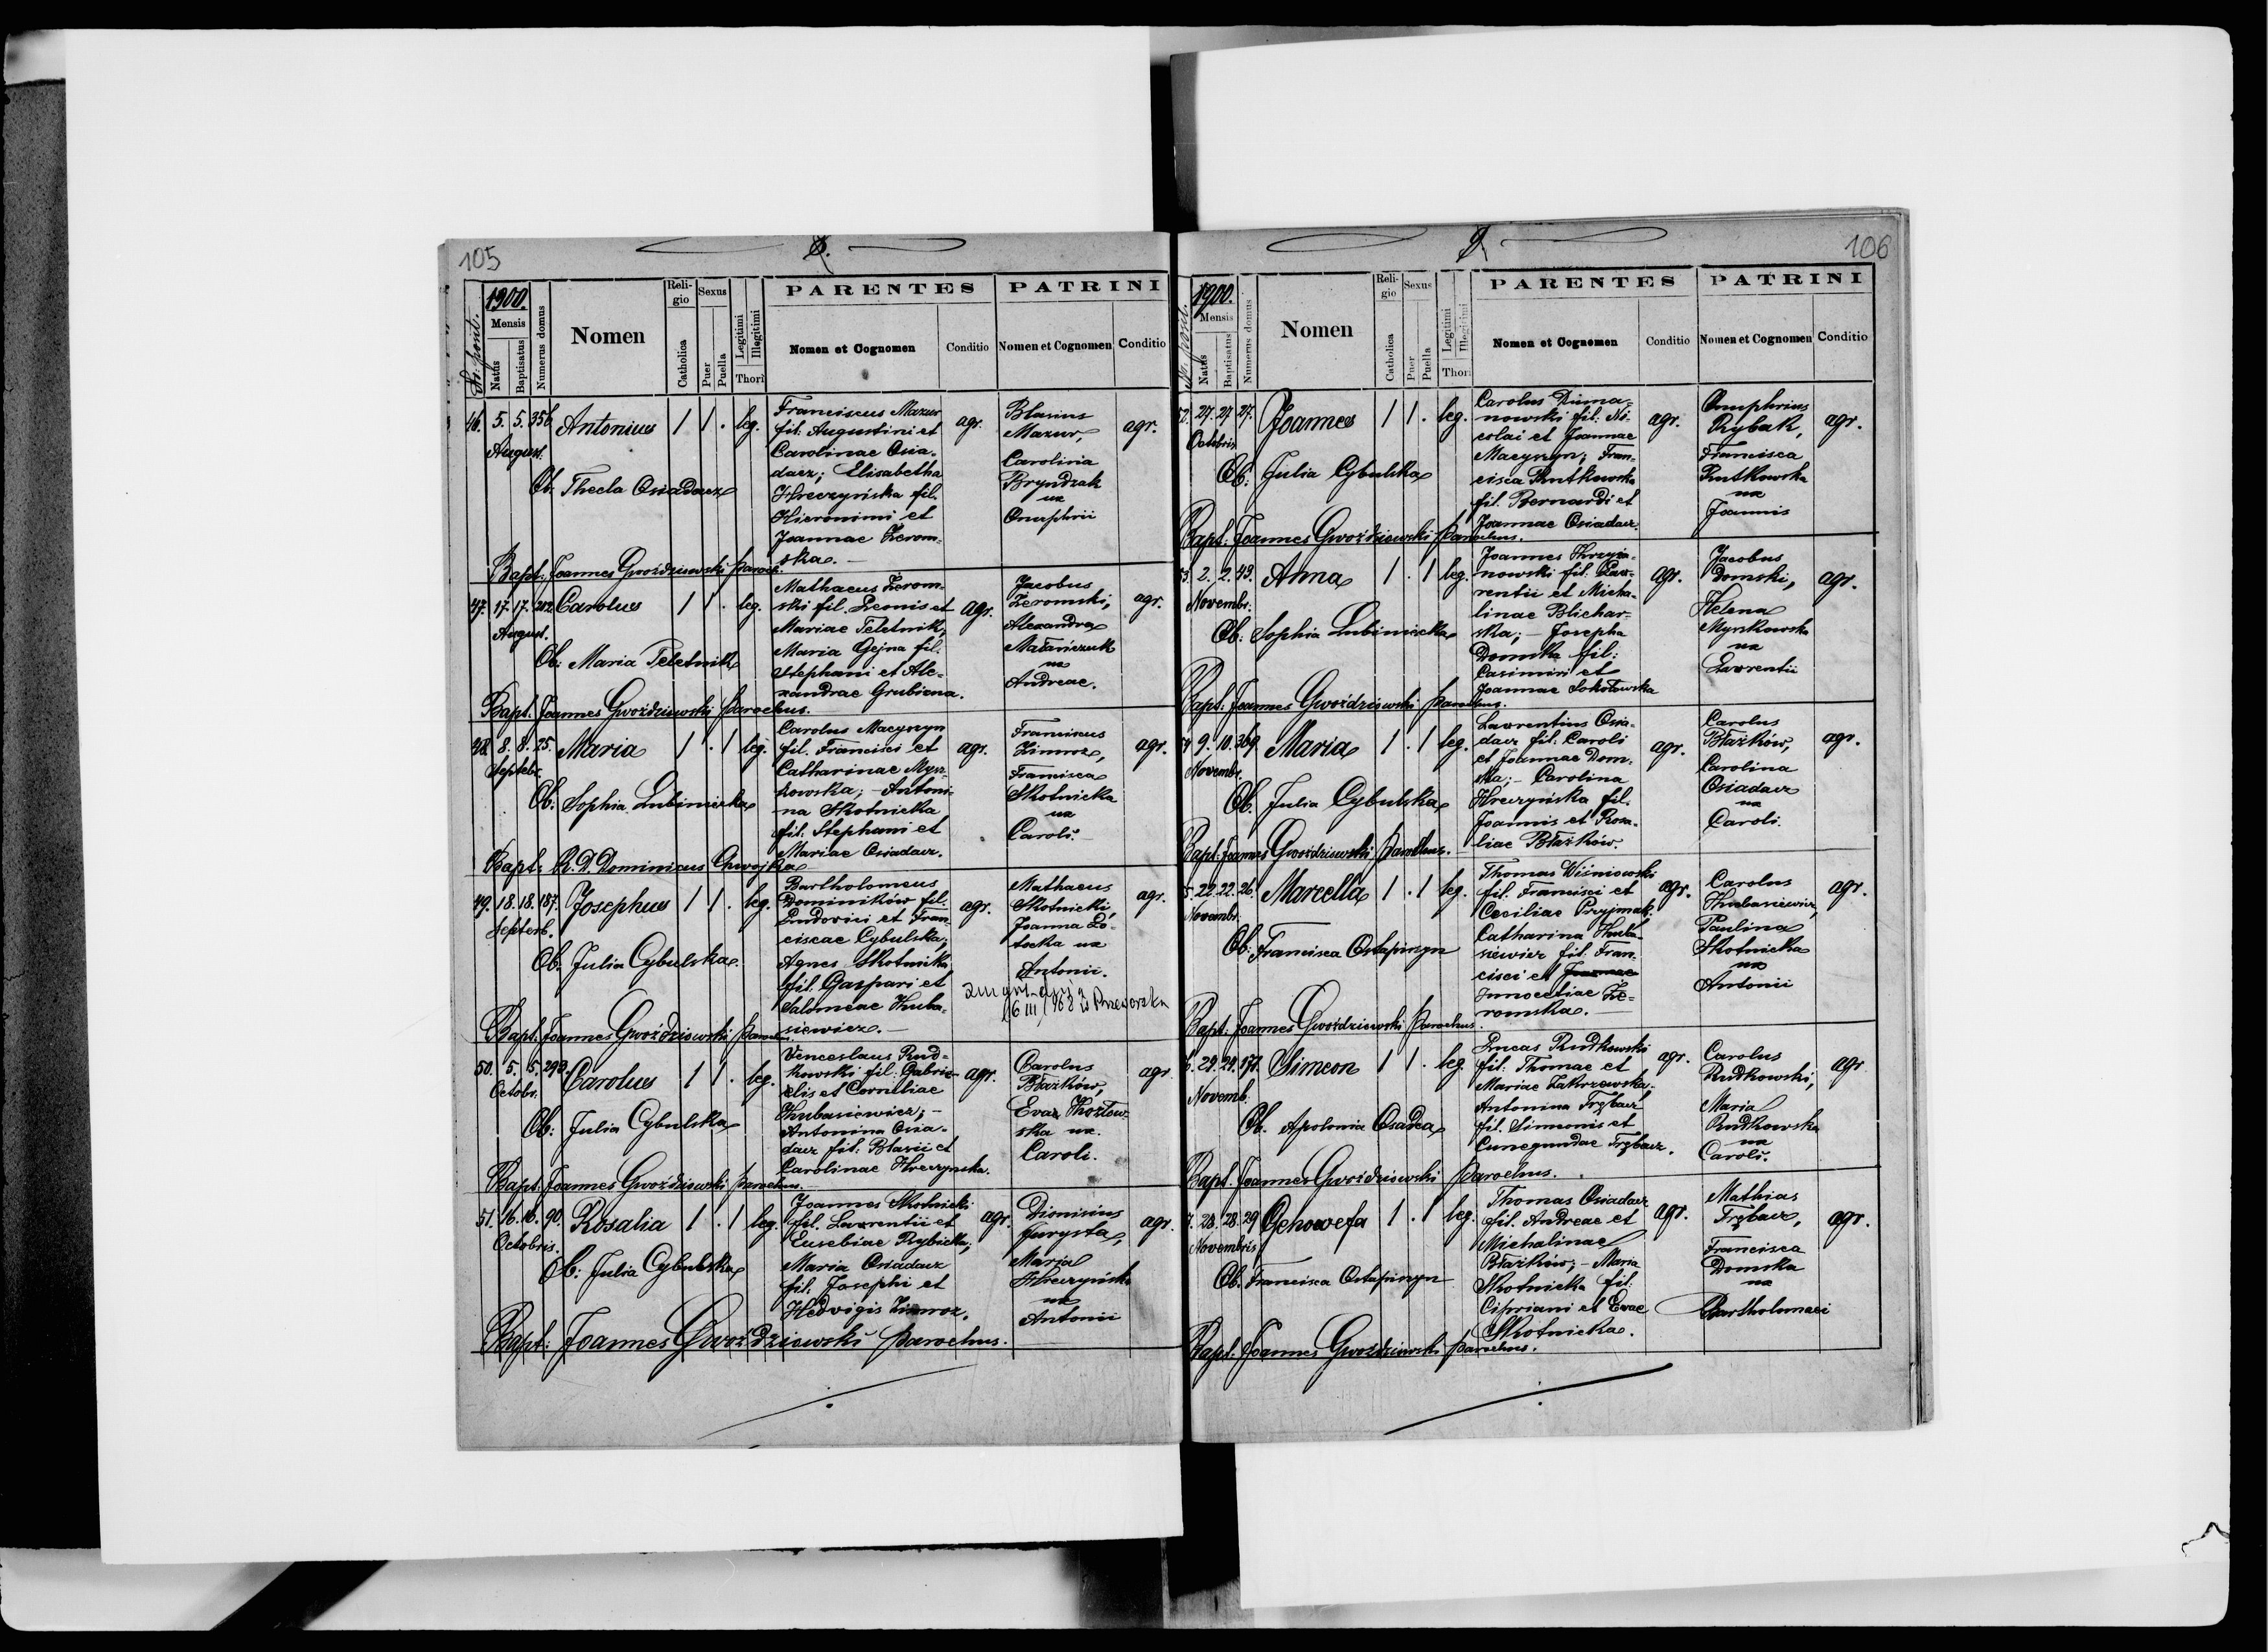 105
8.
Nr. posit.
1900.
Mensis
Natus
Baptisatus
Numerus domus
Nomen
Religio
Catholica
Sexus
Puer
Puella
Legitimi
Illegitimi
Thori
PARENTES
Nomen et Cognomen
Conditio
PATRINI
Nomen et Cognomen
Conditio
46. 5. 5. 356 Antonius 1 1 . leg.
August.
Ob. Thecla Osiadacz
Franciscus Mazur
fil: Augustini et
Carolinae Osia-
dacz; Elisabetha
Hreczyńska fil.
Hieronimi et
Joannae Żerom-
ska. -
agr.
Blasius
Mazur,
Carolina
Bryndzak
ux
Onuphrii
agr.
Bapt: Joannes Gwoździowski paroch.
47. 17. 17. 202 Carolus 1 1 . leg.
August.
Ob: Maria Teletnik
Mathaeus Żerom-
ski fil. Leonis et
Mariae Teletnik,
Maria Gejna fil.
Stephani et Ale-
xandrae Grubizna.
agr.
Jacobus
Żeromski,
Alexandra
Matańczuk
ux
Andreae.
agr.
Bapt. Joannes Gwoździowski parochus.
48. 8. 8. 25. Maria 1 . 1 leg.
Septebr.
Ob: Sophia Lubiniecka
Carolus Macyszyn
fil. Francisci et
Catharinae Mysz-
kowska; - Antoni-
na Skotnicka
fil. Stephani et
Mariae Osiadacz.
agr.
Franciscus
Zimroz,
Francisca
Skotnicka
ux
Caroli. -
agr.
Bapt: R. D. Dominicus Gwojka
49. 18. 18. 187. Josephus 1 1 . leg.
Septerb.
Ob. Julia Cybulska.
Bartholomeus
Dominików fil.
Ludovici et Fran-
ciscae Cybulska,
Agnes Skotnicka
fil. Gaspari et
Salomeae Huba-
siewicz. -
agr.
Mathaeus
Skotnicki,
Joanna Zo-
tocka ux
Antonii.
agr.
6 III 1968 w Przeworsku
Bapt: Joannes Gwoździowski parochus.
50. 5. 5. 293. Carolus 1 1 . leg.
Octobr.
Ob: Julia Cybulska
Venceslaus Rud-
kowski fil: Gabrie-
elis et Corneliae
Hubasiewicz; -
Antonina Osia-
dacz fil: Blasii et
Carolinae Hreczyńska.
agr.
Carolus
Błażków,
Eva Kozłow-
ska ux.
Caroli.
agr.
Bapt. Joannes Gwoździowski parochus.
51. 16. 16. 90. Rosalia 1 . 1 leg.
Octobris.
Ob: Julia Cybulska
Joannes Skotnicki
fil. Laurentii et
Eusebiae Rybicka;
Maria Osiadacz
fil. Josephi et
Hedvigis Zimroz.
agr.
Dionisius
Jurysta,
Maria
Hreczyńska
ux
Antonii
agr.
Bapt: Joannes Gwoździowski parochus.
106
9.
Nr. posit.
1900.
Mensis
Natus
Baptisatus
Numerus domus
Nomen
Religio
Catholica
Sexus
Puer
Puella
Legitimi
Illegitimi
Thori
PARENTES
Nomen et Cognomen
Conditio
PATRINI
Nomen et Cognomen
Conditio
52. 27. 27 27. Joannes 1 1 . leg.
Octobris
Ob: Julia Cybulska
Carolus Duma-
nowski fil: Ni-
colai et Joannae
Macyszyn; Fran-
cisca Rutkowska
fil. Bernardi et
Joannae Osiadacz.
agr.
Onuphrius
Rybak,
Francisca
Rutkowska
ux
Joannis
agr.
Bapt: Joannes Gwoździowski parochus.
53. 2. 2. 43. Anna 1 . 1 leg.
Novembr.
Ob: Sophia Lubiniecka
Joannes Krzyża-
nowski fil. Lau-
rentii et Micha-
linae Blichar-
ska; - Josepha
Domska fil:
Casimiri et
Joannae Sokołowska
agr.
Jacobus
Domski,
Helena
Myszkowska
ux
Laurentii
agr.
Bapt: Joannes Gwoździowski parochus.
54 9. 10. 369 Maria 1 . 1 leg.
Novembr.
Ob. Julia Cybulska
Laurentius Osia-
dacz fil. Caroli
et Joannae Dom-
ska; - Carolina
Hreczyńska fil.
Joannis et Rosa-
liae Błażków.
agr.
Carolus
Błażków,
Carolina
Osiadacz
ux
Caroli.
agr.
Bapt: Joannes Gwoździowski parochus.
5. 22. 22. 26. Marcella 1 . 1 leg.
Novembr.
Ob: Francisca Ostapinyn
Thomas Wiśniowski
fil. Francisci et
Ceciliae Pryjmak.
Catharina Huba-
siewicz fil. Fran-
cisci et Joannae
Innocetiae Że-
romska. -
agr.
Carolus
Hubasiewicz,
Paulina
Skotnicka
ux
Antonii
agr.
Bapt: Joannes Gwoździowski parochus.
6. 24. 24. 171. Simeon 1 1 . leg
Novemb.
Ob. Apolonia Osadca
Lucas Rudkowski
fil: Thomae et
Mariae Zakrzewska.
Antonina Trębacz
fil. Simeonis et
Cunegundae Trębacz.
agr.
Carolus
Rudkowski,
Maria
Rudkowska
ux
Caroli.
agr
Bapt. Joannes Gwoździowski parochus.
7. 28. 28. 29 Genowefa 1 . 1 leg.
Novembris
Ob. Francisca Ostapinyn
Thomas Osiadacz
fil. Andreae et
Michalinae
Błażków; - Maria
Skotnicka fil:
Cipriani et Evae
Skotnicka.
agr.
Mathias
Trębacz,
Francisca
Domska
ux
Bartholomaei
agr.
Bapt. Joannes Gwoździowski parochus.